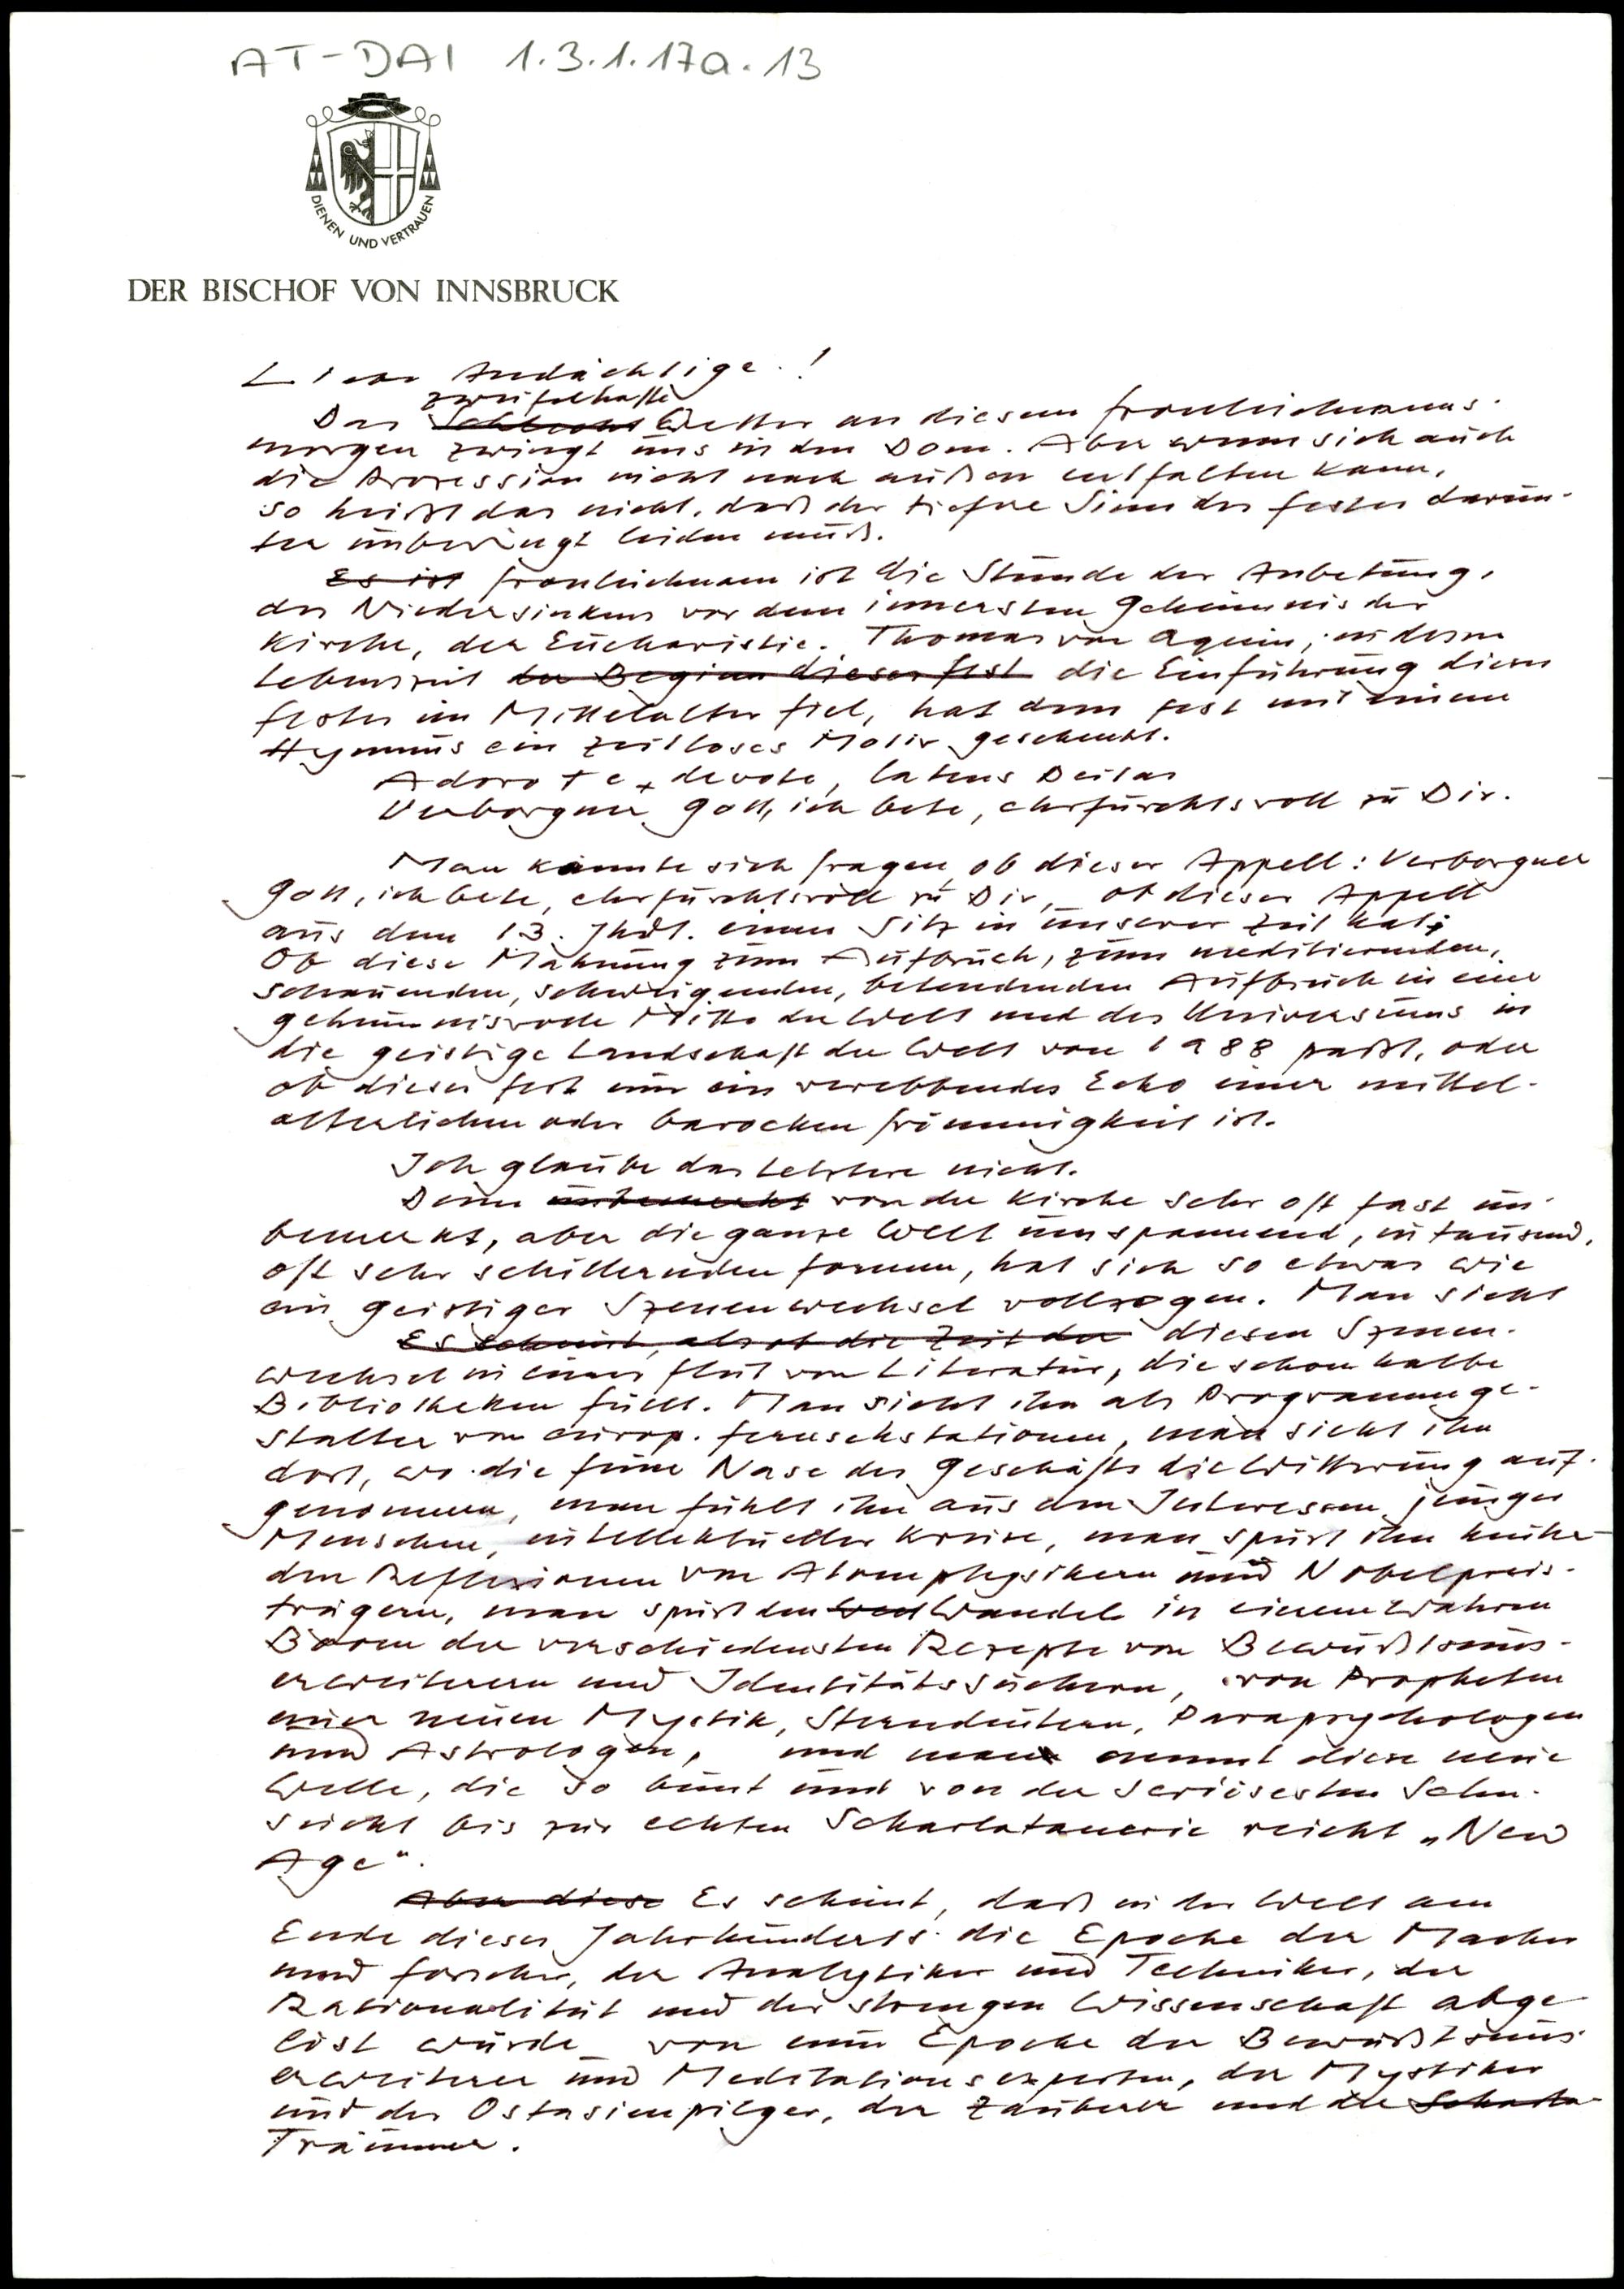 AT-DAI 1.3.1.17a.13
DIENEN UND VERTRAUEN
DER BISCHOF VON INNSBRUCK
Liebe Andächtige!
zweifelhafte
Das Schlechte Wetter an diesem Fronleichnams-
morgen zwingt uns in den Dom. Aber wenn sich auch
die Prozession nicht nach außen entfalten kann,
so heißt das nicht, daß der tiefere Sinn des Festes darun-
ter unbedingt leiden muß.
Es ist Fronleichnam ist die Stunde der Anbetung,
des Niedersinkens vor dem innersten Geheimnis der
Kirche, der Eucharistie. Thomas von Aquin, in dessen
Lebenszeit der Beginn dieses Fest die Einführung dieses
Festes im Mittelalter fiel, hat dem Fest mit einem
Hymnus ein zeitloses Motiv geschenkt.
Adoro te devote, latens Deitas
Verborgner Gott, ich bete, ehrfurchtsvoll zu Dir.
Man könnte sich fragen, ob dieser Appell: Verborgner
Gott, ich bete, ehrfurchtsvoll zu Dir, ob dieser Appell
aus dem 13. Jhdt. einen Sitz in unserer Zeit hat;
Ob diese Mahnung zum Aufbruch, zum meditierenden,
schauenden, schweigenden, betendenden Aufbruch in eine
geheimnisvolle Mitte der Welt und des Universums in
die geistige Landschaft der Welt von 1988 paßt, oder
ob dieses Fest nur ein verebbendes Echo einer mittel-
alterlichen oder barocken Frömmigkeit ist.
Ich glaube das Letztere nicht.
Denn unbemerkt von der Kirche sehr oft fast un-
bemerkt, aber die ganze Welt umspannend, in tausend,
oft sehr schillernden Formen, hat sich so etwas wie
ein geistiger Szenenwechsel vollzogen. Man sieht
Es scheint, als ob die Zeit der diesen Szenen-
wechsel in einer Flut von Literatur, die schon halbe
Bibliotheken füllt. Man sieht ihn als Programmge-
stalter von europ. Fernsehstationen, man sieht ihn
dort, wo die feine Nase des Geschäfts die Witterung auf-
genommen, man fühlt ihn aus den Interessen junger
Menschen, intellektueller Kreise, man spürt ihn hinter
den Reflexionen von Atomphysikern und Nobelpreis-
trägern, man spürt den Wandel in einem wahren
Boom der verschiedensten Rezepte von Bewußtseins-
erweiterern und Identitätssuchern, von Propheten
einer neuen Mystik, Sterndeutern, Parapsychologen
und Astrologen, und man nennt diese neue
Welle, die so bunt und von der seriösesten Sehn-
sucht bis zur echten Scharlatanerie reicht „New
Age“.
Aber diese Es scheint, daß in der Welt am
Ende dieses Jahrhunderts die Epoche der Macher
und Forscher, der Analytiker und Techniker, der
Rationalität und der strengen Wissenschaft abge-
löst würde von einer Epoche der Bewußtseins-
erweiterer und Meditationsexperten, der Mystiker
und der Ostasienpilger, der Zauberer und der Scharla-
Träumer.